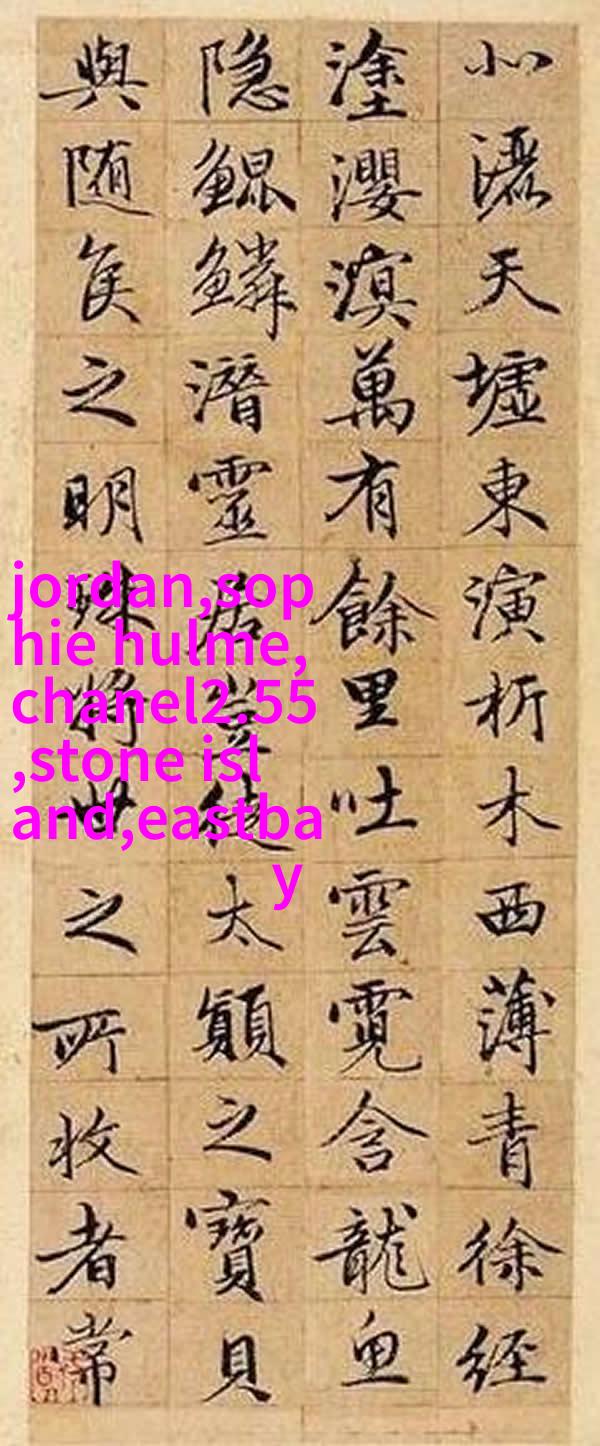 北灑天墟東演析木西薄青徐經
塗瀴溟萬有餘里吐雲霓含龍魚
隐鯤鱗潛靈居豈徒太顛之寶貝
與随侯之明珠將世之所收者常
jordan,sop
hie hulme,
chanel2.55
,stone isl
and,eastba
y